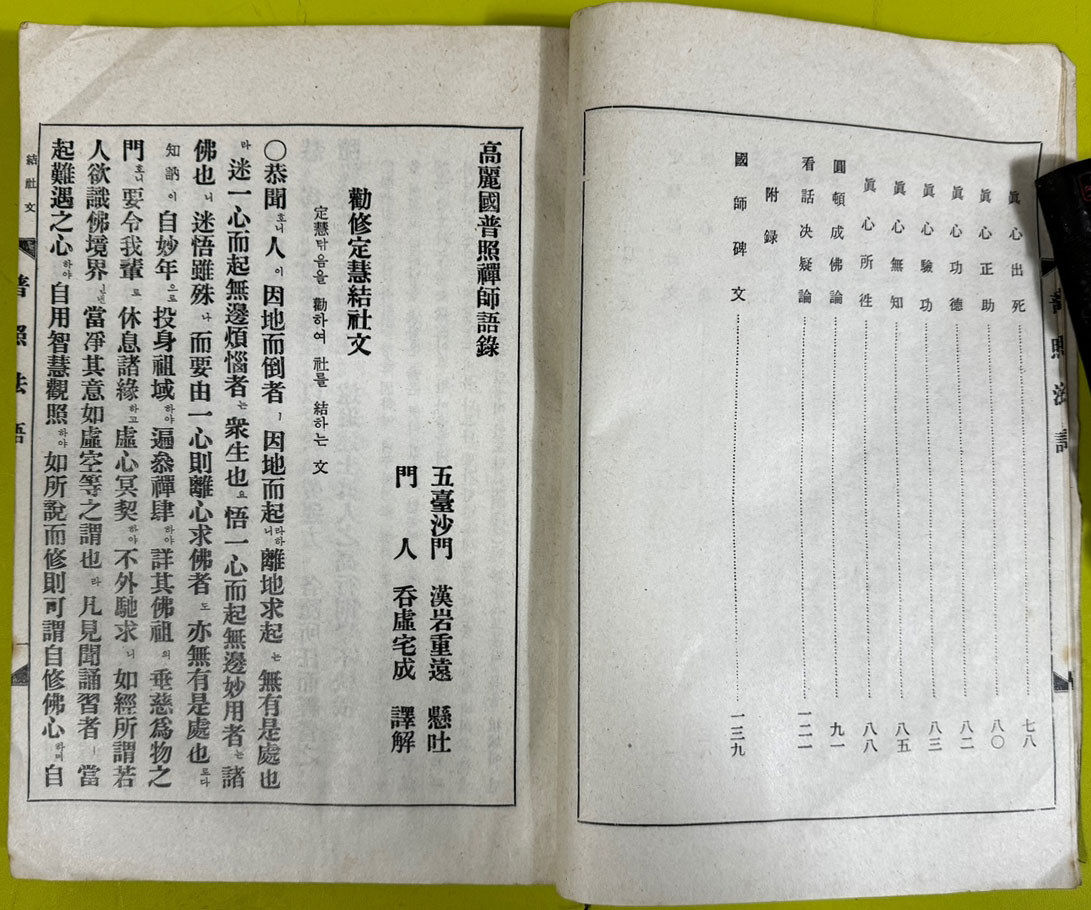 眞心出死 七八
眞心正助 八〇
眞心功德 八二
眞心驗功 八三
眞心無知 八五
眞心所徃 八八
圓頓成佛論 九一
看話决疑論 一二一
附錄
國師碑文 一三九
普照法語
高麗國普照禪師語錄
五臺沙門 漢岩重遠 懸吐
門人 呑虛宅成 譯解
勸修定慧結社文
定慧닦음을 勸하여 社를 結하는 文
〇恭聞호니人이因地而倒者ㅣ因地而起라하니離地求起는無有是處也
라迷一心而起無邊煩惱者는衆生也요悟一心而起無邊妙用者는諸
佛也니迷悟雖殊나而要由一心則離心求佛者도亦無有是處也로다
知訥이自妙年으로投身祖域하야遍叅禪肆하야詳其佛祖의垂慈爲物之
門호니要令我輩로休息諸緣하고虛心冥契하야不外馳求니如經所謂若
人欲識佛境界인댄當淨其意如虛空等之謂也라凡見聞誦習者ㅣ當
起難遇之心하야自用智慧觀照하야如所說而修則可謂自修佛心하며自
結社文
普照法語